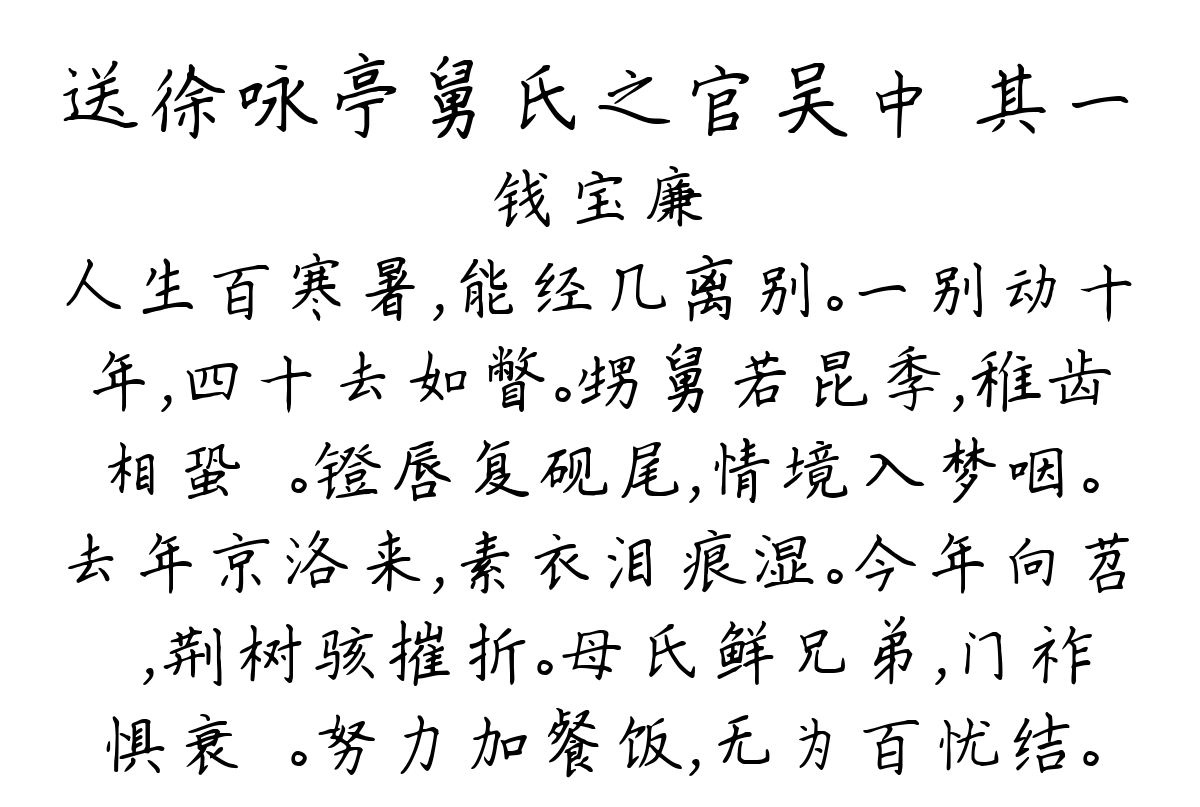 送徐咏亭舅氏之官吴中 其一
钱宝廉
人生百寒暑,能经几离别。一别动十
年,四十去如瞥。甥舅若昆季,稚齿
相蛩 。镫唇复砚尾,情境入梦咽。
去年京洛来,素衣泪痕湿。今年向苕
,荆树骇摧折。母氏鲜兄弟,门祚
惧衰 。努力加餐饭,无为百忧结。